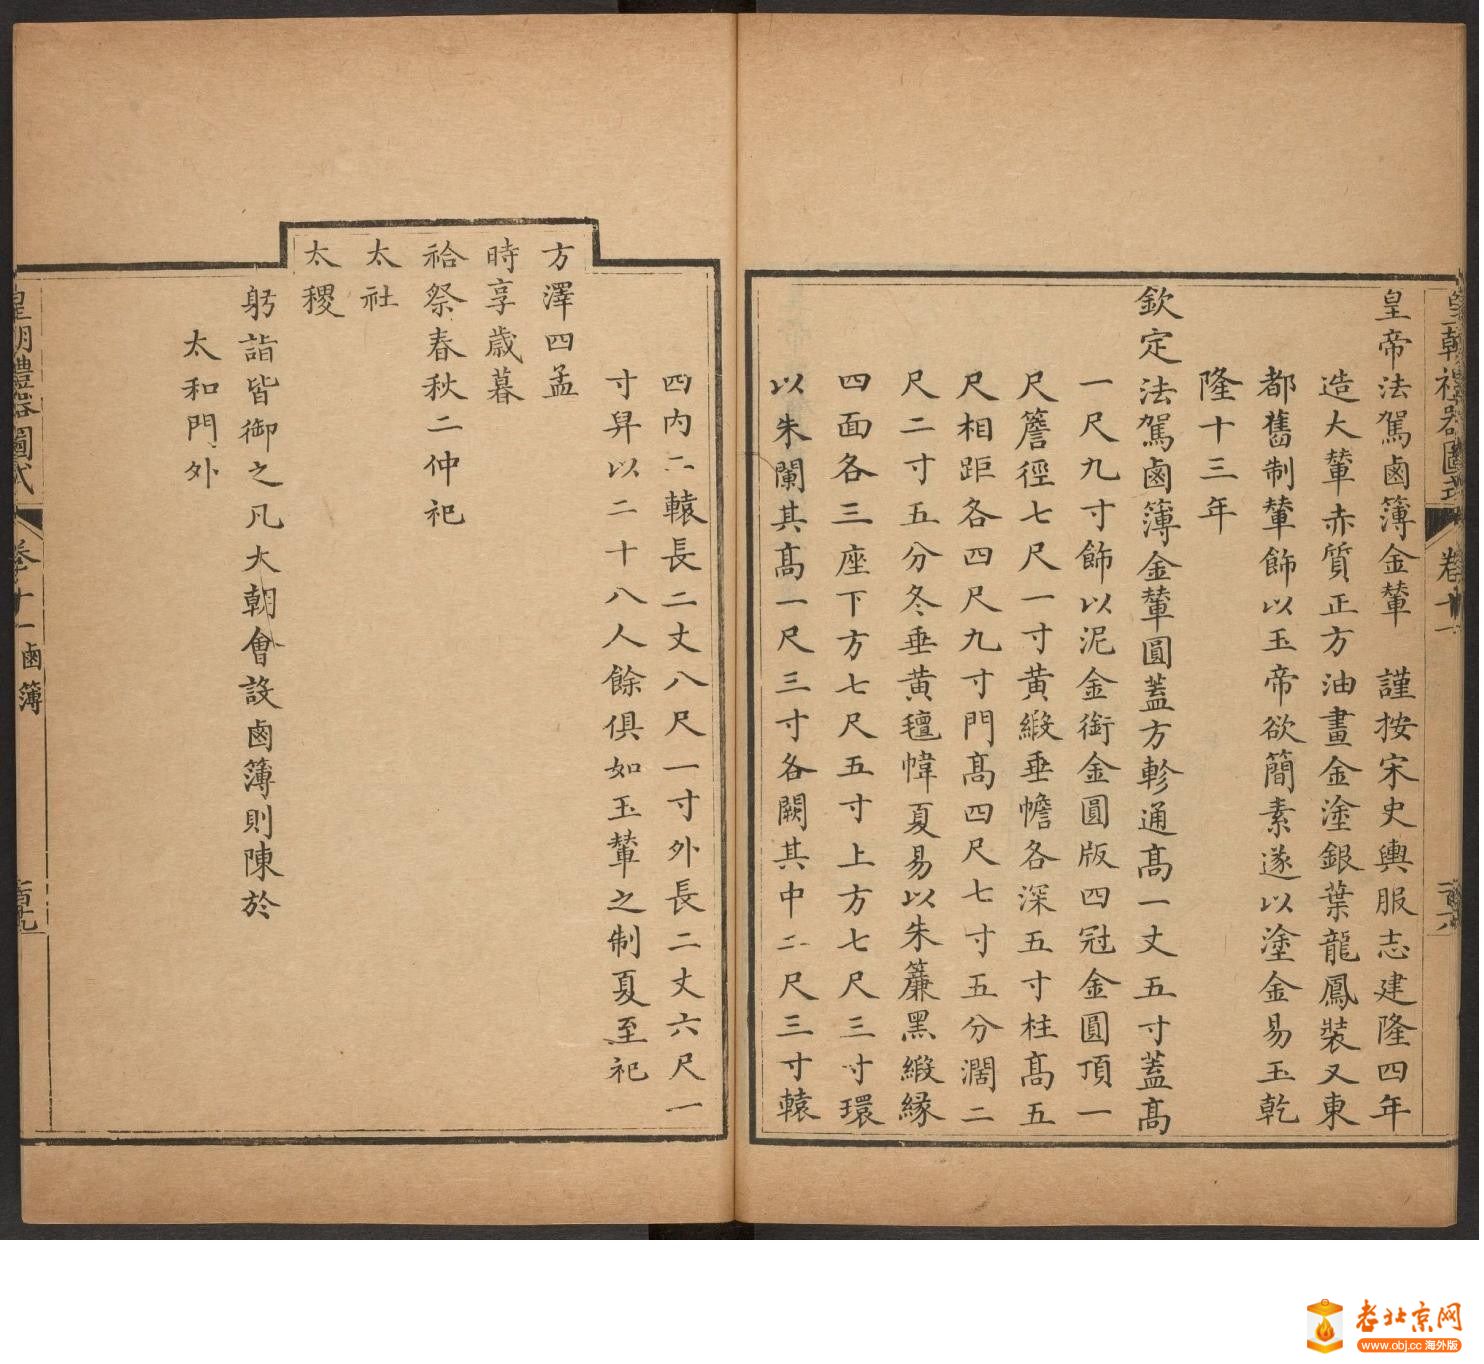 皇朝禮器圖式 卷十一
皇帝法駕鹵簿金輦 謹按宋史輿服志建隆四年
造大輦赤質正方油畫金塗銀葉龍鳳裝又東
都舊制輦飾以玉帝欲簡素遂以塗金易玉乾
隆十三年
欽定法駕鹵簿金輦圓蓋方軫通高一丈五寸蓋高
一尺九寸飾以泥金銜金圓版四冠金圓頂一
尺簷徑七尺一寸黃緞垂幨各深五寸柱高五
尺相距各四尺九寸門高四尺七寸五分濶二
尺二寸五分冬垂黃氊幃夏易以朱簾黑緞緣
四面各三座下方七尺五寸上方七尺三寸環
以朱闌其高一尺三寸各闕其中二尺三寸轅
四內二轅長二丈八尺一寸外長二丈六尺一
寸舁以二十八人餘俱如玉輦之制夏至祀
方澤四孟
時享歲暮
祫祭春秋二仲祀
太社
太稷
躬詣皆御之凡大朝會設鹵簿則陳於
太和門外
皇朝禮器圖式 卷十一 鹵簿
老北京网
www.obj.cc 海外版